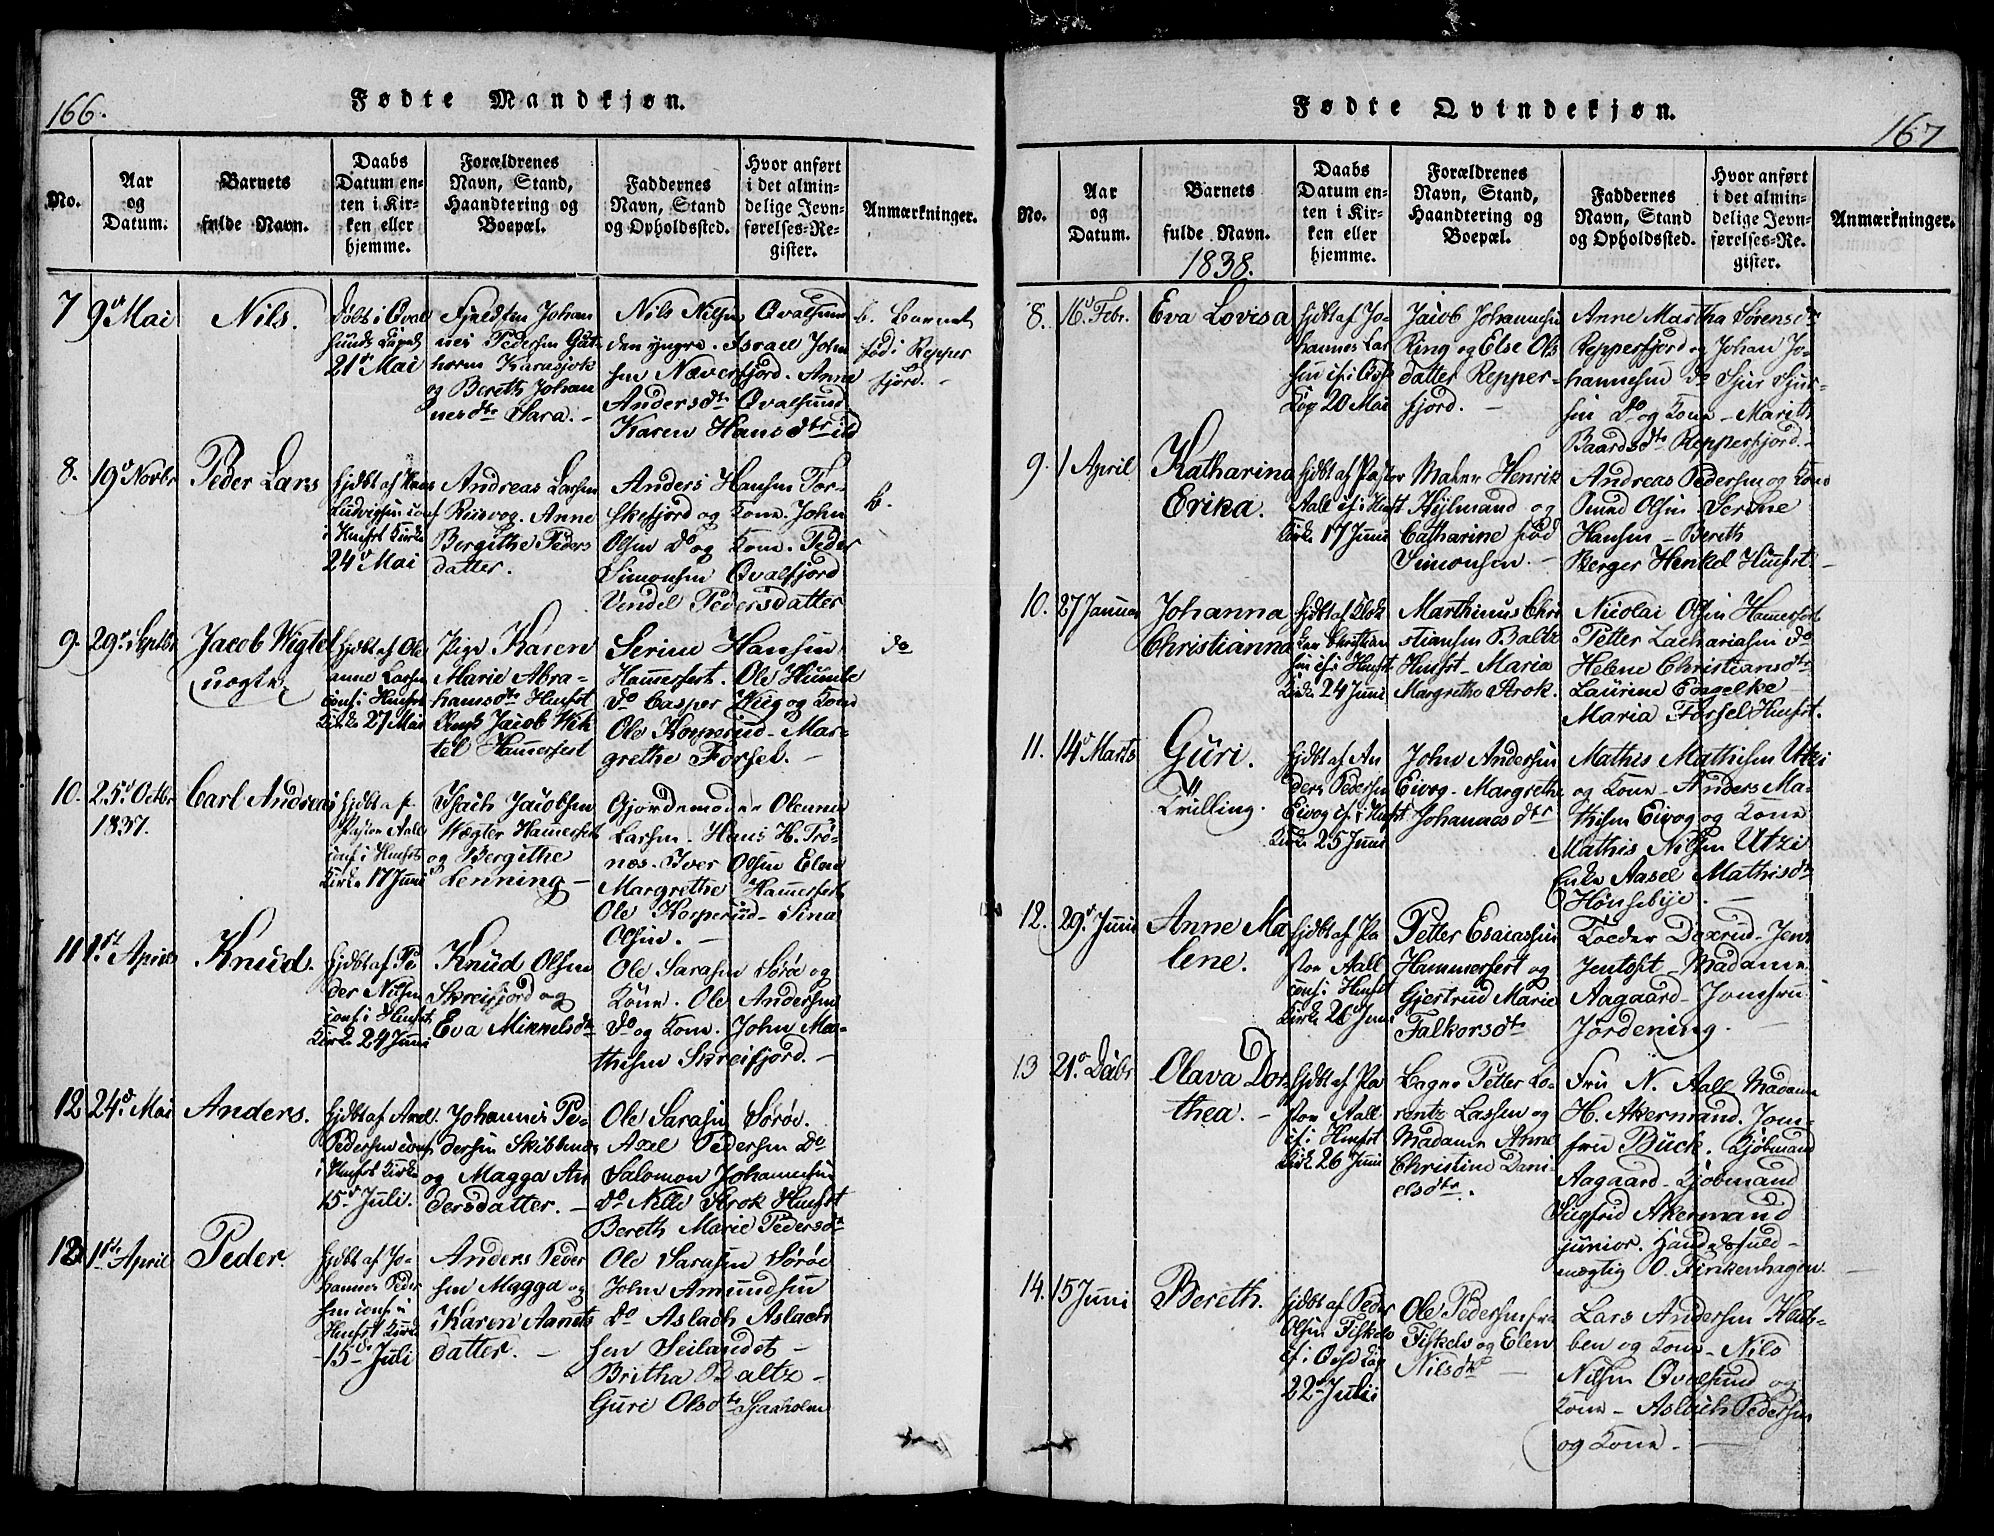 166.
Fødte Mandkjøn.
No.
Aar
og
Datum.
Barnets
fulde Navn.
Daabs
Datum en-
ten i Kir-
ken eller
hjemme.
Forældrenes
Navn, Stand,
Haandtering og
Boepæl.
Faddernes
Navn, Stand
og Opholdssted.
Hvor anført
i det almin-
delige Jevn-
førelses-Re-
gister.
Anmærkninger.
7
9d Mai
Nils.
Døbt i Qval
sunds Capel
21d Mai
Fjeldfin Johan
nes Pedersen Gut
horm Karasjok
og Bereth Johan
nesdtr Sara. -
Nils Nilsen Qvalsund
den yngre. Israel John
sen Næverfjord. Anne
Andersdtr Qvalsund
Karen Hansdtr ibd
b. Barnet
fød i Repper
fjord. -
8.
19d Novbr
Peder Lars
hjdbt af Hans
Ludvigsen conf
i Hmfst Kirke
24d Mai
Andreas Larsen
Riisvog. Anne
Bergithe Peders
datter.
Anders Hansen Tor-
skefjord og Kone. John
Olsen do og Kone. Peder
Simonsen Qvalfjord
Vendel Pedersdatter
b.
9.
29d Septbr
Jacob Wigtel
uægte
hjdbt af Ole
anne Larsen
conf i Hmfst
Kirke 27 Mai
Pige Karen
Marie Abra-
hamsdtr Hmfst
Ungk Jacob Wik
tel Hammerfest
Serine Hansen
Hammerfest. Ole Humle
do Casper Wiig og Kone
Ole Kopperud - Mar-
grethe Forsel. -
do
10.
25d Octbr
1837.
Carl Andreas
hjdbt af
Pastor Aall
conf i Hmfst
Kirke 17 Juni
Isach Jacobsen
Wægter Hamerfest
og Bergithe
Henning -
Gjordemoder Oleanna
Larsen. Hans H. Trø-
næs. Iver Olsen Elen
Margrethe Hamerfest
Ole Kopperud - Sina
Olsen. -
11
1st April
Knud.
hjdbt af Pe
der Nilsen
conf i Hmfst
Kirke 24 Juni
Knud Olsen
Skreifjord og
Eva Mikkelsdtr
Ole Sarasen Sørøe og
Kone. Ole Andersen
do og Kone. John Ma-
thisen Skreifjord. -
12
24d Mai
Anders.
hjdbt af Axel
Pedersen conf
i Hmfst Kirke
15d Juli.
Johannes Pe-
dersen Skibbenes
og Magga An
dersdatter. -
Ole Sarasen Sørøe.
Axel Pedersen do
Salomon Johannesen
do Nelle Strok Hmfst
Bereth Marie Pedersdtr
13
1ste April
Peder.
hjdbt af Jo-
hannes Peder
sen conf i
Hmfst Kirke
- 15de Juli
Anders Peder
sen Magga og
Karen Aanets
datter. -
Ole Sarasen Sørøe
John Amundsen
do Aslach Aslach
sen Seilandet -
Britha Baltz -
Guri Olsdtr Saaholm
167
Fødte Qvindekjøn.
No.
Aar
og
Datum.
Barnets
fulde Navn.
1838.
Daabs
Datum en-
ten i Kir-
ken eller
hjemme.
Forældrenes
Navn, Stand,
Haandtering og
Boepæl.
Faddernes
Navn, Stand
og Opholdssted.
Hvor anført
i det almin-
delige Jevn-
førelses-Re-
gister.
Anmærkninger.
8.
16d Febr.
Eva Lovisa
hjdbt af Jo-
hannes Lar
sen cf. i Qvss
Kap 20 Mai
Jacob Johannesen
Ring og Else Ols
datter Repper-
fjord. -
Anne Martha Sørensdtr
Repperfjord og Johan Jo-
hannesen do Sjur Sjur-
sen do og Kone - Marith
Baardsdtr Repperfjord. -
9.
1 April
Katharina
Erika.
hjdbt af Pastor
Aall cf. i Hmfst
Kirke 17 Juni
Maler Henrik
Hylmand og
Catharine fød
Simonsen. -
Andreas Pedersen og Kone
Omund Olsen Serine
Hansen - Bereth
Berger Henkel Hmfst. -
10.
27 Januar
Johanna
Christianna
hjdbt af Klok
ker Christian
sen cf. i Hmfst
Kirke 24 Juni
Marthinus Chri
stiansen Baltz
Hmfst - Maria
Margrethe Strok.
Nicolai Olsen Hamerfest
Petter Zachariasen do
Helene Christiansdtr
Laurine Engelke -
Maria Forsel Hmfst.
11.
14d Marts
Guri.
Tvilling.
hjdbt af An
ders Pedersen
Eivog cf. i Hmfst
Kirke 25 Juni
John Andersen
Eivog - Margrethe
Johannesdtr
Mathis Mathisen Utzi
og Kone - Anders Ma-
thisen Eivog og Kone
Mathis Nilsen Utzi
Enke Aasel Mathisdtr
Hønsebye. -
12.
29d Juni
Anne Ma
lene.
hjdbt af Pa
stor Aall
conf. i Hmfst
Kirke 26 Juni
Petter Esaiassen
Hammerfest og
Gjertrud Marie
Falkorsdtr
Køeder Doxrud - Jens
Jentoft - Madame
Aagaard - Jomfru
Jördening. -
13
21d Decbr
Olava Dor
thea. -
hjdbt af Pa
stor Aall
cf. i Hmfst
Kirke 26 Juni
Bager Petter Lo-
rentz Lassen og
Madame Anne
Christine Dani-
elsdtr.
Fru N. Aall Madame
H. Akermand. Jom-
fru Buck. Kjøbmand
Aagaard - Kjøbmand
Siegfrid Akermand
junior. Handelsfuld-
mægtig O. Finkenhagen. -
14.
15 Juni
Bereth.
hjdbt af Peder
Olsen Fiskelv
cf. i Qvsd Kap
22d Juli
Ole Pedersen fra
Fiskelv og Elen
Nilsdtr -
Lars Andersen Klub-
ben og Kone - Nils
Nilsen Qvalsund og
Kone - Aslach Pedersen
og Kone. -